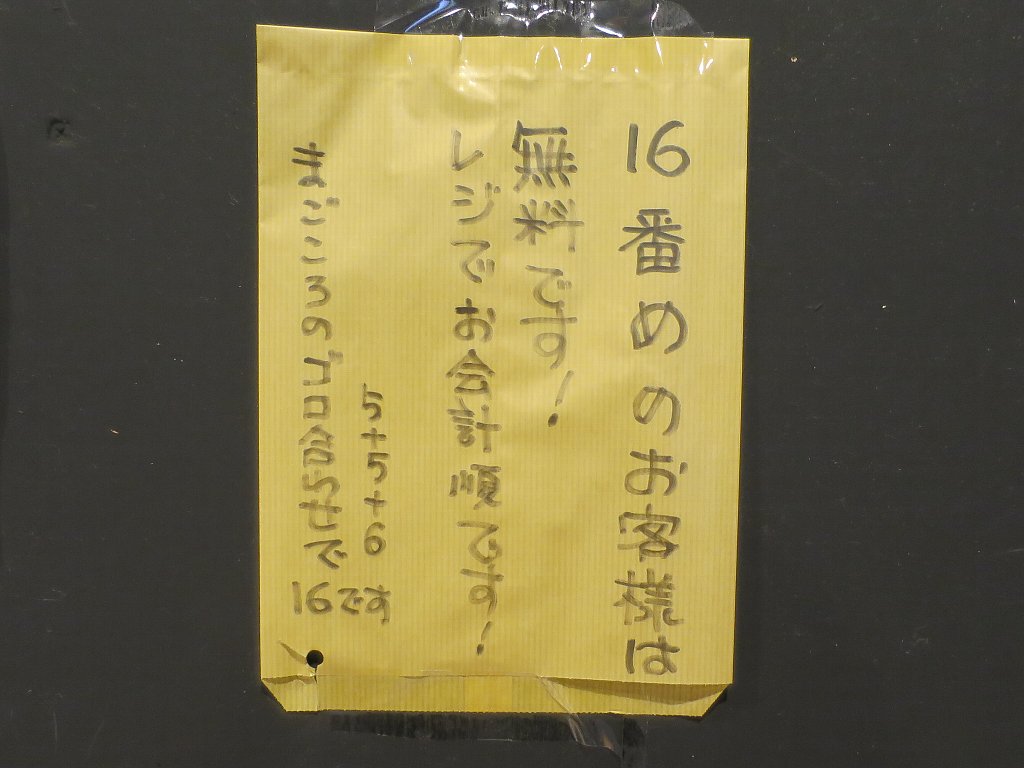 16番めのお客様は
無料です!
レジでお会計順です!
5+5+6
まごころのゴロ合らせで
16です